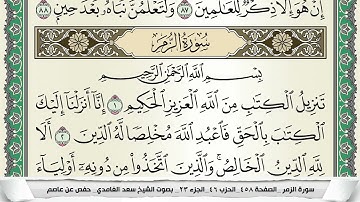 إِنْ هُوَ إِلَّا ذِكْرٌ لِّلْعَالَمِينَ ٨٧ وَلَتَعْلَمُنَّ نَبَأَهُ بَعْدَ حِينٍ ٨٨
سُورَةُ الزُّمَرِ
بِسْمِ اللَّهِ الرَّحْمَٰنِ الرَّحِيمِ
تَنزِيلُ الْكِتَٰبِ مِنَ اللَّهِ الْعَزِيزِ الْحَكِيمِ ١ إِنَّا أَنزَلْنَا إِلَيْكَ
الْكِتَٰبَ بِالْحَقِّ فَاعْبُدِ اللَّهَ مُخْلِصًا لَّهُ الدِّينَ ٢ أَلَا
لِلَّهِ الدِّينُ الْخَالِصُ وَالَّذِينَ اتَّخَذُوا مِن دُونِهِ أَوْلِيَاءَ
سورة الزمر _ الصفحة ٤٥٨ _ الحزب ٤٦ _ الجزء ٢٣ _ بصوت الشيخ سعد الغامدي _ حفص عن عاصم